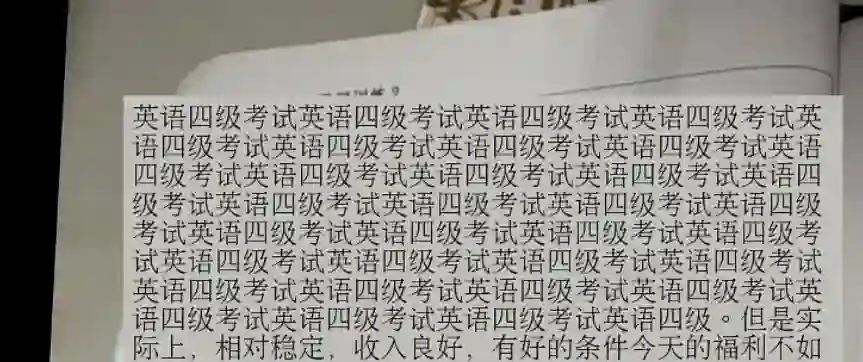 英语四级考试英语四级考试英语四级考试英语四级考试英
语四级考试英语四级考试英语四级考试英语四级考试英语
四级考试英语四级考试英语四级考试英语四级考试英语四
级考试英语四级考试英语四级考试英语四级考试英语四级
考试英语四级考试英语四级考试英语四级考试英语四级考
试英语四级考试英语四级考试英语四级考试英语四级考试
英语四级考试英语四级考试英语四级考试英语四级考试英
语四级考试英语四级考试英语四级考试英语四级。但是实
际上，相对稳定，收入良好，有好的条件今天的福利不如